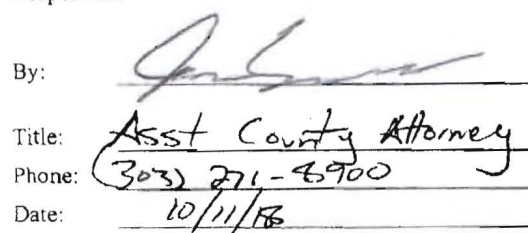 By:
Title: Asst County Attorney
Phone: (303) 271-8900
Date: 10/11/18